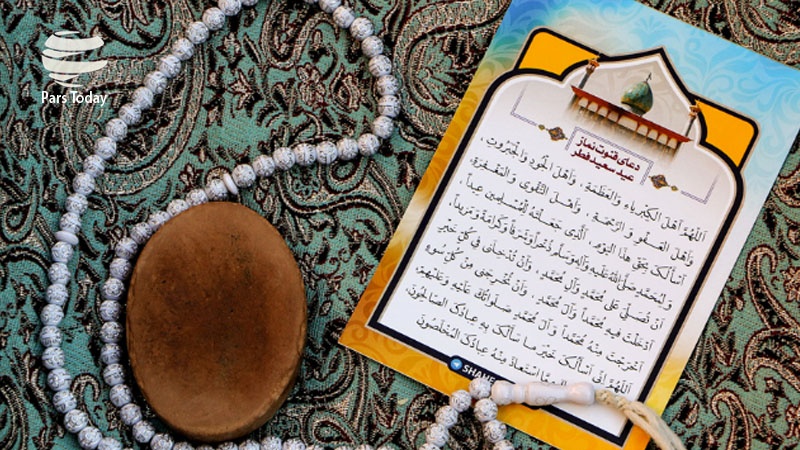 Pars Today
دعای قنوت نماز
عید سعید فطر
اَللّهُمَّ اَهْلَ الْكِبْرِياءِ وَالْعَظَمَةِ ، وَاَهْلَ الْجُودِ وَالْجَبَرُوتِ
وَاَهْلَ الْعَفْوِ وَالرَّحْمَةِ ، وَاَهْلَ التَّقْوى وَ الْمَغْفِرَةِ،
اَسْأَلُكَ بِحَقِّ هذَا الْيَومِ ، اَلَّذى جَعَلْتَهُ لِلْمُسْلِمينَ عيداً
وَ لِمُحَمَّدٍ صَلَّى اللهُ عَلَيْهِ وَآلِهِ وَسَلَّمَ ذُخْراً وَشَرَفاً وَكَرامَةً وَمَزيداً،
اَنْ تُصَلِّىَ عَلى مُحَمَّدٍ وَآلِ مُحَمَّدٍ ، وَاَنْ تُدْخِلَنى فى كُلِّ خَيْرٍ
اَدْخَلْتَ فيهِ مُحَمَّداً وَآلَ مُحَمَّدٍ ، وَاَنْ تُخْرِجَنى مِنْ كُلِّ سُوءٍ
اَخْرَجْتَ مِنْهُ مُحَمَّداً وَ آلَ مُحَمَّدٍ صَلَواتُكَ عَلَيْهِ وَعَلَيْهِمْ،
اَللّهُمَّ اِنّى اَسْأَلُكَ خَيْرَ ما سَأَلَكَ بِهِ عِبادُكَ الصّالِحُونَ،
مِمَّا اسْتَعاذَ مِنْهُ عِبادُكَ الْمُخْلَصُونَ